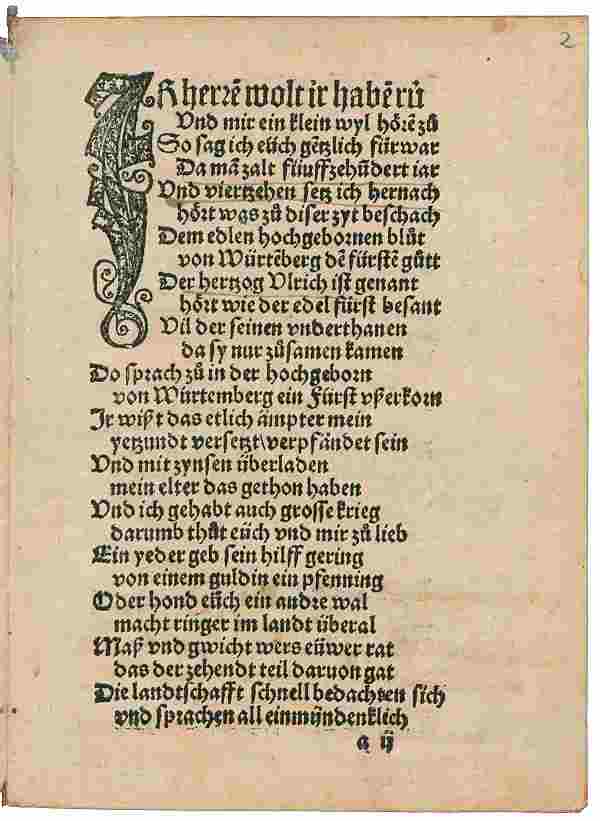 2
IR herrē wolt ir habē rů
Vnd mir ein klein wyl hörē zů
So sag ich eüch gētzlich fürwar
Da mā zalt füuffzehūdert iar
Vnd viertzehen setz ich hernach
hört was zů diser zyt beschach
Dem edlen hochgebornen blůt
von Würtēberg dē fürstē gůtt
Der hertzog Vlrich ist genant
hört wie der edel fürst besant
Vil der seinen vnderthanen
da sy nur zůsamen kamen
Do sprach zů in der hochgeborn
von Würtemberg ein Fürst vßerkorn
Ir wißt das etlich ämpter mein
yetzundt versetzt\verpfändet sein
Vnd mit zynsen überladen
mein elter das gethon haben
Vnd ich gehabt auch grosse krieg
darumb thůt eüch vnd mir zů lieb
Ein yeder geb sein hilff gering
von einem guldin ein pfenning
Oder hond eüch ein andre wal
macht ringer im landt überal
Maß vnd gwicht wers eüwer rat
das der zehendt teil daruon gat
Die landtschafft schnell bedachten sich
vnd sprachen all einmündenklich
a ij